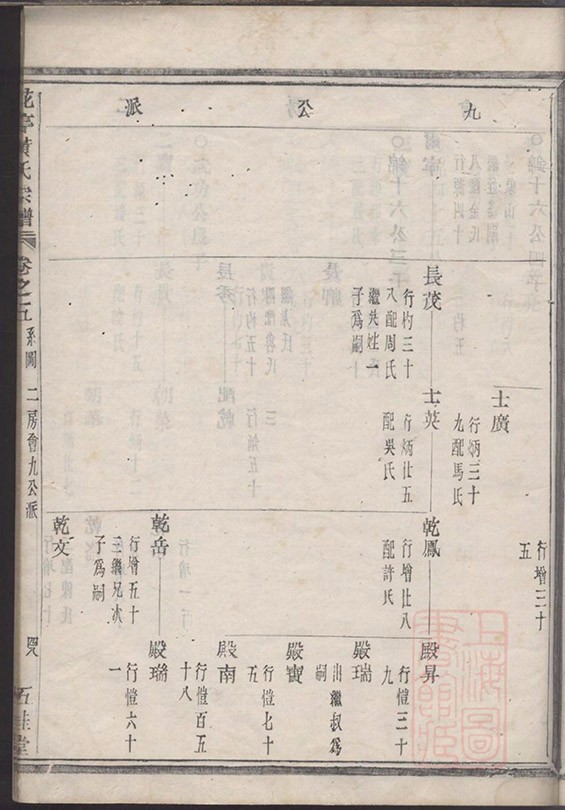 九公派
行增三十
五
士廣
行炳三十
九配馬氏
長茂
行杓三十
入配周氏
繼失姓一
子為嗣
士英
行炳廿五
配吳氏
乾鳳
行增廿八
配許氏
殿昇
行愷三十
九
殿瑞
出繼叔為
嗣
殿寶
行愷七十
五
殿南
行愷百五
十八
乾岳
行增五十
三繼兄次
子為嗣
殿瑞
行愷六十
一
乾文
氏宗譜
卷之五
系圖
二房會九公派
石桂堂
上海圖